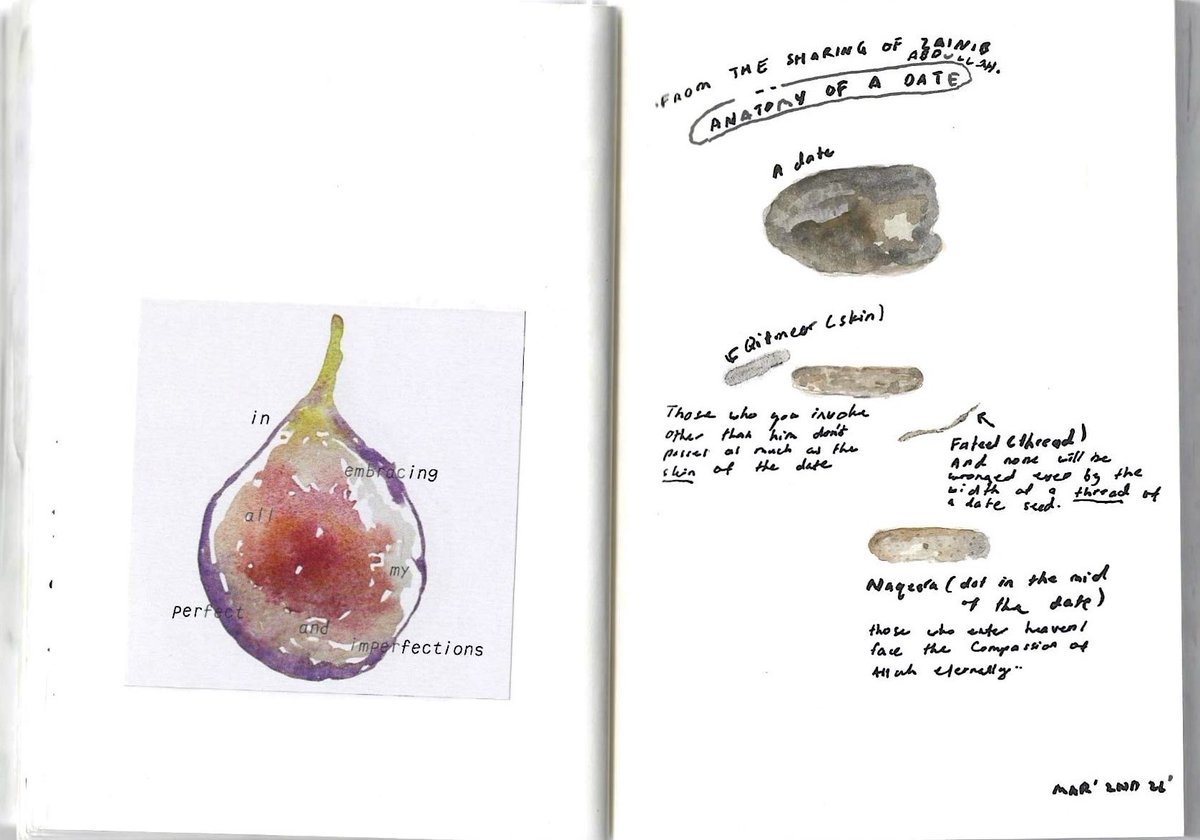 in
embracing
all
my
perfect
and
imperfections
FROM THE SHARING OF ZAINIB
ABDULLAH.
ANATOMY OF A DATE
A date
Qitmeer (skin)
Those who you invoke
other than him don't
posses as much as the
skin of the date
Fateel (thread)
And none will be
wronged even by the
width of a thread of
a date seed.
Naqeera (dot in the mid
of the date)
those who enter heaven/
face the Compassion of
Allah eternally..
MAR' 2ND